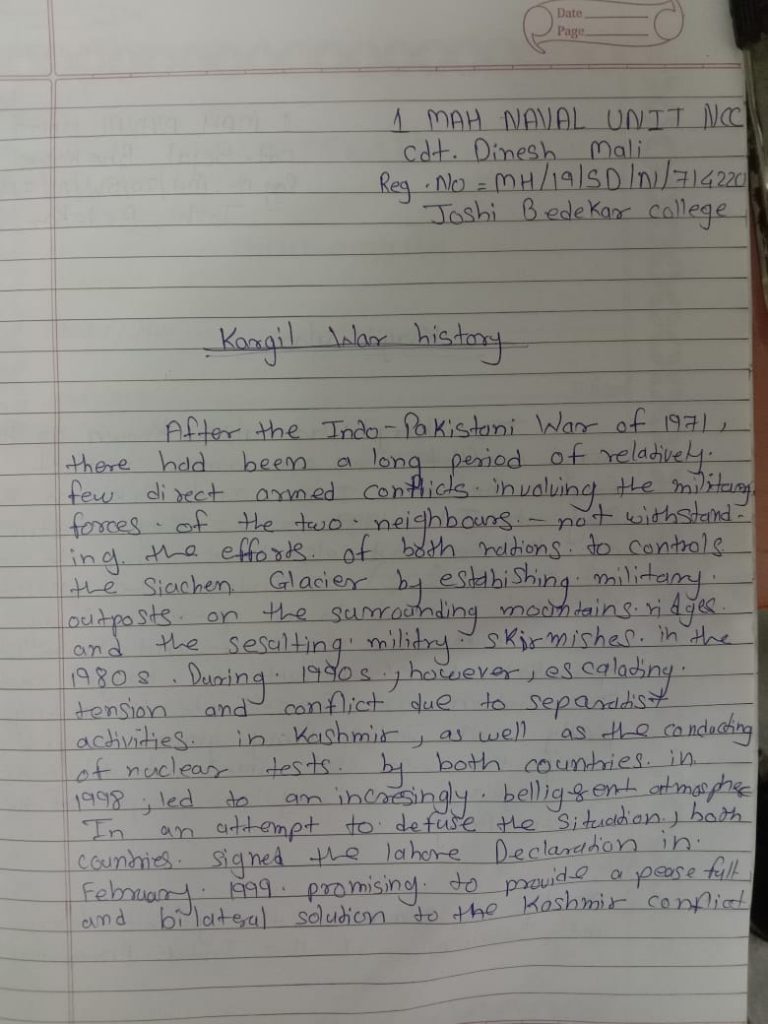 Date
Page
1 MAH NAVAL UNIT NCC
Cdt. Dinesh Mali
Reg. No = MH/19/SD/N/714220
Joshi Bedekar college
Kargil War history
After the Indo-Pakistani War of 1971,
there had been a long period of relatively.
few direct armed conflicts. involving the military
forces. of the two. neighbours. - not withstand-
ing. the efforts. of both nations. to controls
the Siachen Glacier by estabishing. military.
outposts. on the surrounding moontains. ridges.
and the sesulting. militry. skirmishes. in the
1980s. During. 1990s., however, escalading.
tension and conflict due to separatist
activities. in Kashmir, as well as the conducting
of nuclear tests. by both countries. in
1998, led to an incresingly. belligerent atmosphee
In an attempt to defuse the situation, both
countries. signed the lahore Declaration in.
February. 1999. promising. to provide a pease full
and bilateral solution to the Kashmir conflict